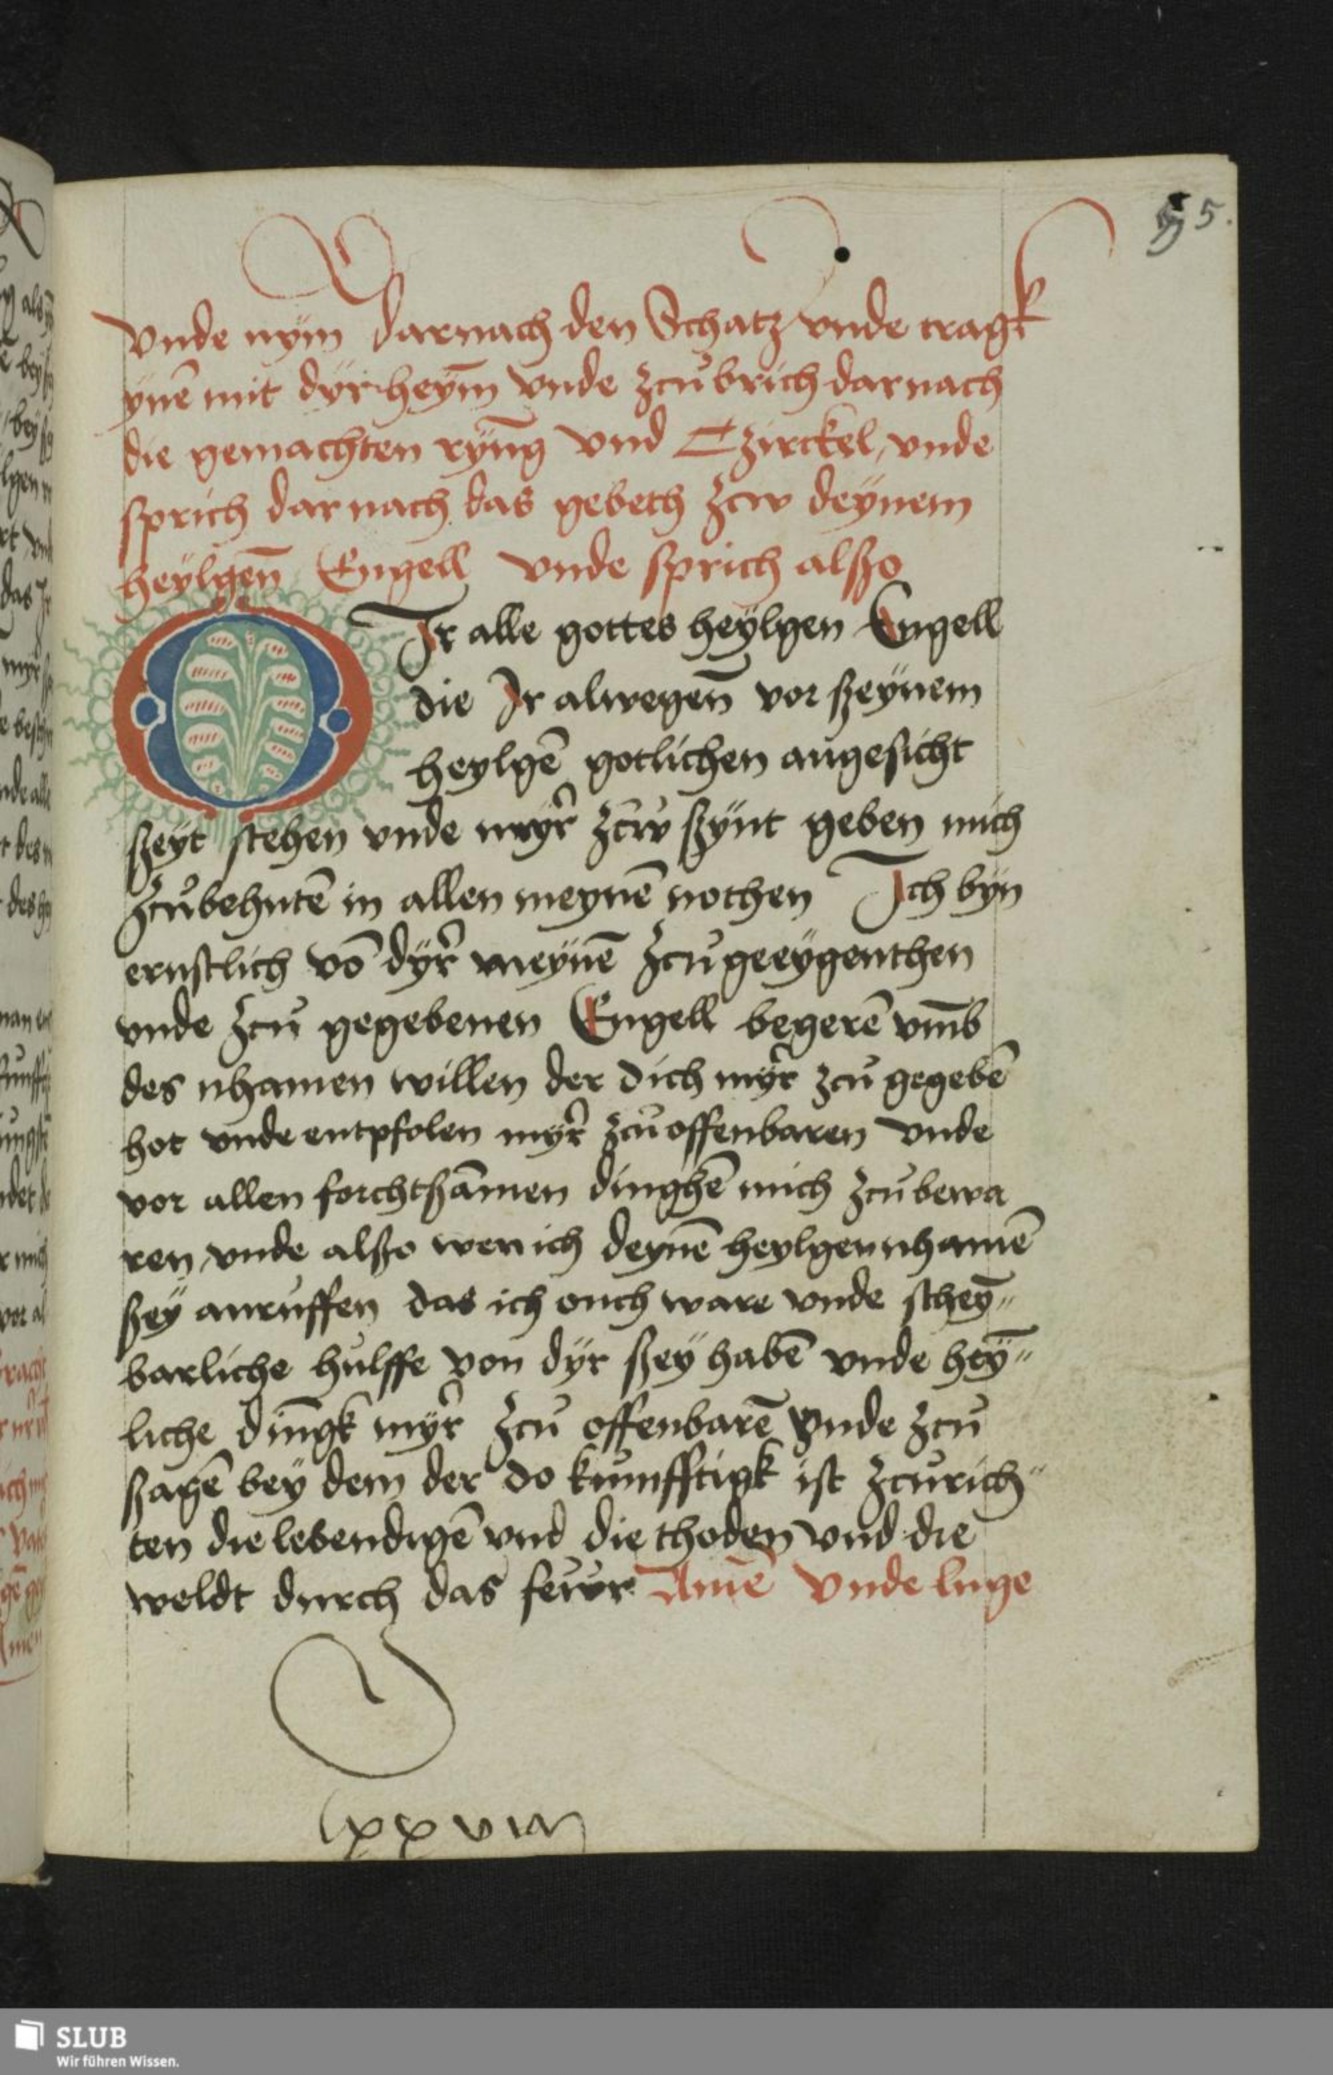 55.
Vnde nym darnach den Schatz vnde tragk
ynē mit dyr heym̄ vnde zcubrich darnach
die gemachten ryn̄g vnd Czirckel, vnde
sprich darnach das gebeth zcw deynem
heylgen̄ Engell vnde sprich alßo
O Ir alle gottes heylgen Engell
die Ir alwegen̄ vor ßeynem
heylgē gotlichen angesicht
ßeyt stehen vnde myr zcw ßynt geben mich
zcubehutē in allen meynē nothen Ich byn
ernstlich vō dyr meynē zcugeeygenthen
vnde zcu gegebenen Engell begerē vm̄b
des nhamen willen der dich myr zcu gegebē
hot vnde entpfolen myr zcu offenbaren vnde
vor allen forchtßāmen dinghē mich zcubewa
ren vnde alßo wen ich deynē heylgen nhamē
ßey anruffen das ich ouch ware vnde scheȳ"
barliche hulffe von dyr ßey habē vnde heȳ"
liche din̄gk myr zcu offenbarē vnde zcu
ßagē bey dem der do kumfftigk ist zcurich"
ten die lebendigē vnd die thoden vnd die
weldt durch das fewr Amē Vnde luge
lxxviii
SLUB
Wir führen Wissen.